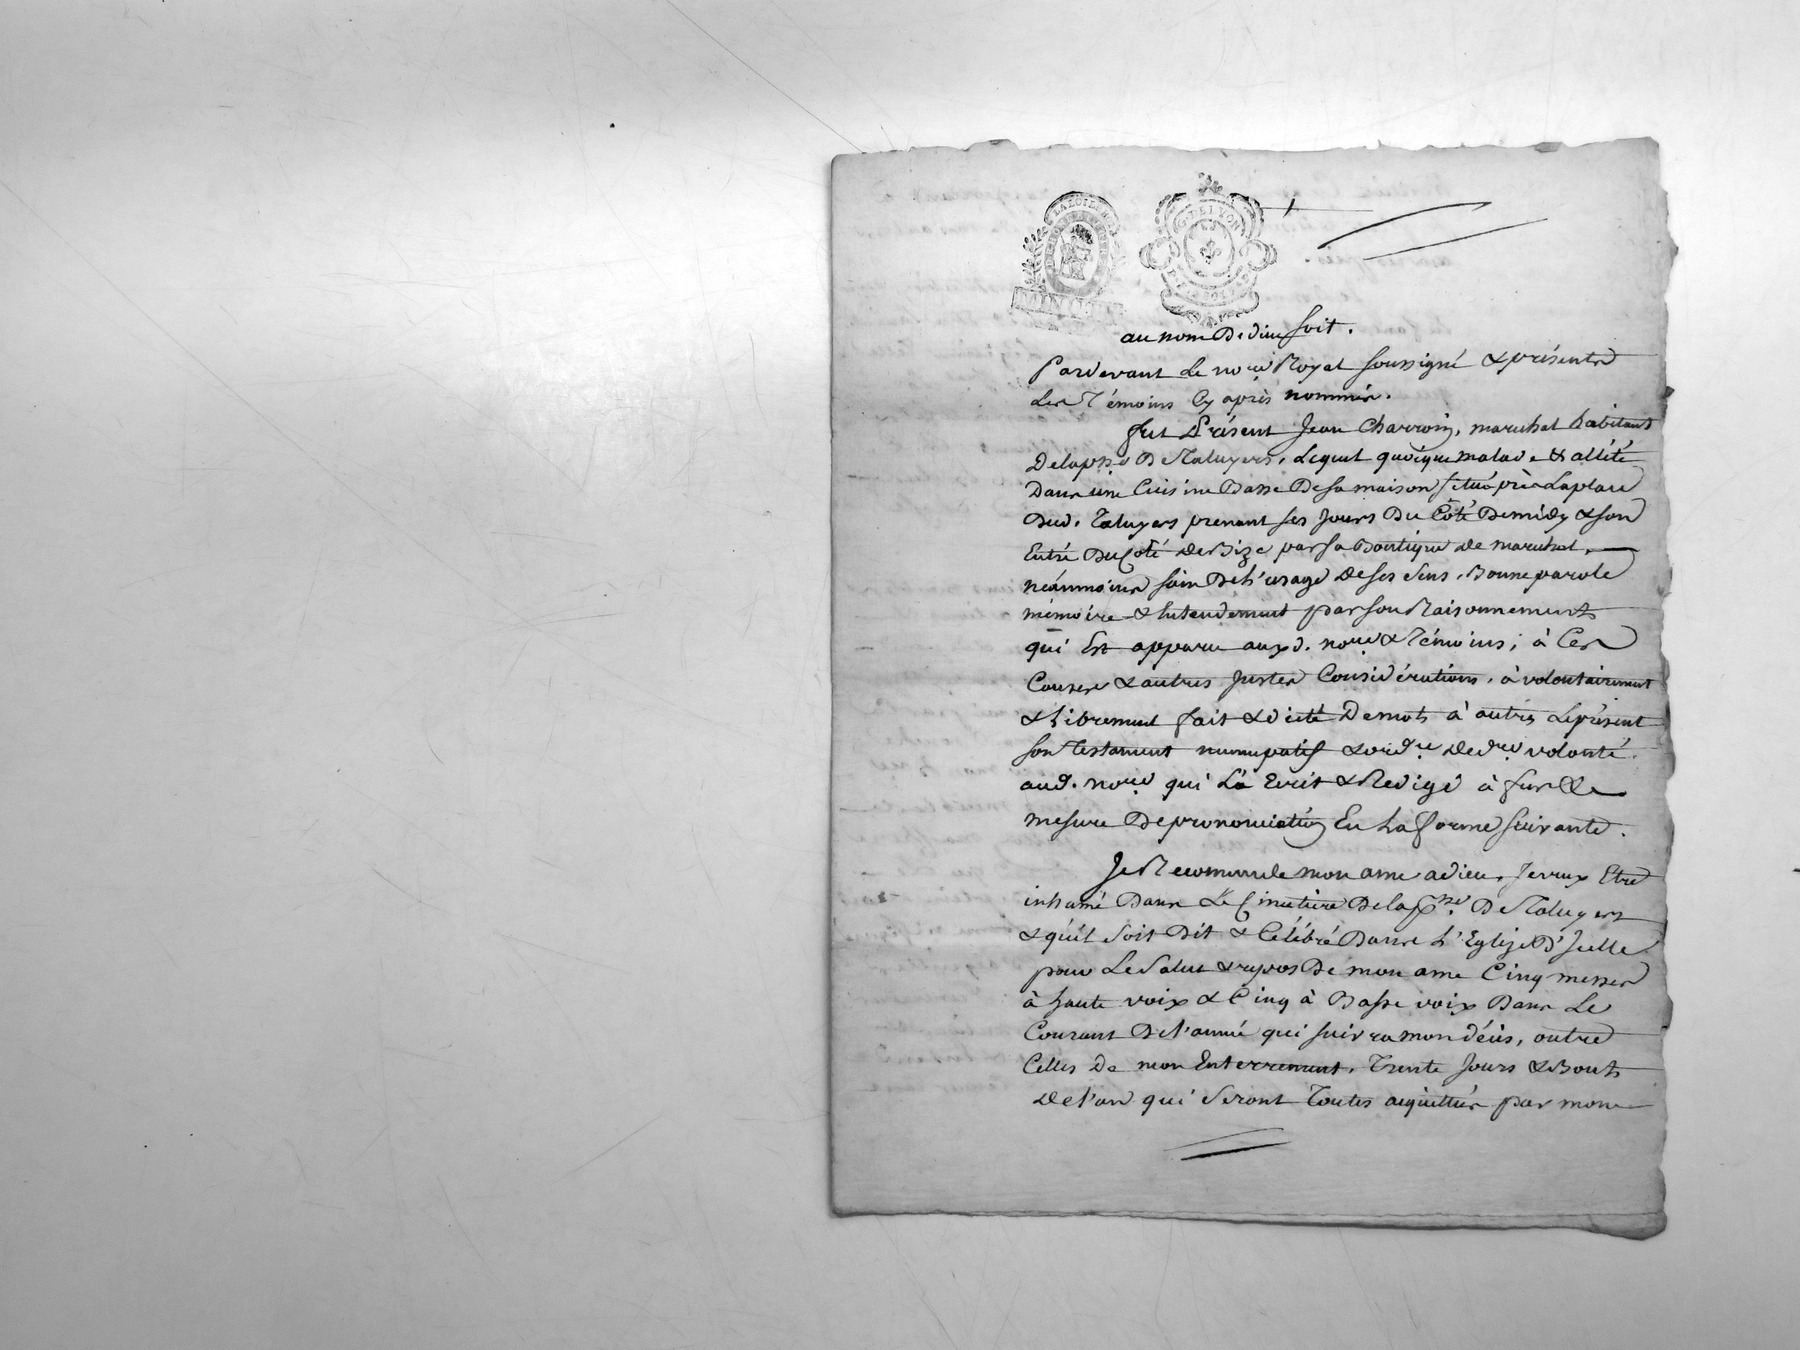 LA LOI LE ROI
G. DE LYON
au nom De dieu soit.
Pardevant Le no.re Royal soussigné & présents
Les Témoins Cy après nommés.
fut Présent Jean Charroin, maréchal habitant
Delapsse De Taluyers, Lequel quoique malade & allité
Dans une Cuisine Basse De sa maison située près Laplace
Dud. Taluyers prenant ses Jours Du Côté Demidy & son
Entré Du Coté De Bize par sa Boutique De maréchal,
néanmoins sain De L'usage De ses sens, Bonne parole
mémoire & Entendement par son Raisonnement
qui Est apparu auxd. no.re & Témoins, à Ces
Causes & autres Justes Considérations, à volontairement
& Librement fait & dicté Demots à autres Leprésent
son Testament nuncupatif & ord.re De d.re volonté
aud. no.re qui L'a Ecrit & Redigé à fur &
mesure De prononciation En La forme suivante.
Je Recommande mon ame adieu, Jeveux Etre
inhumé Dans Le Cimetiere Delapsse. De Taluyers
& qu'il soit Dit & Célébré Dans L'Eglise D'Icelle
pour Le Salut & repos De mon ame Cinq messes
à haute voix & Cinq à Basse voix Dans Le
Courant De L'année qui suivra mon décès, outre
Celles De mon Enterrement, Trente Jours & Bout
De L'an qui Seront Toutes acquittées par mon